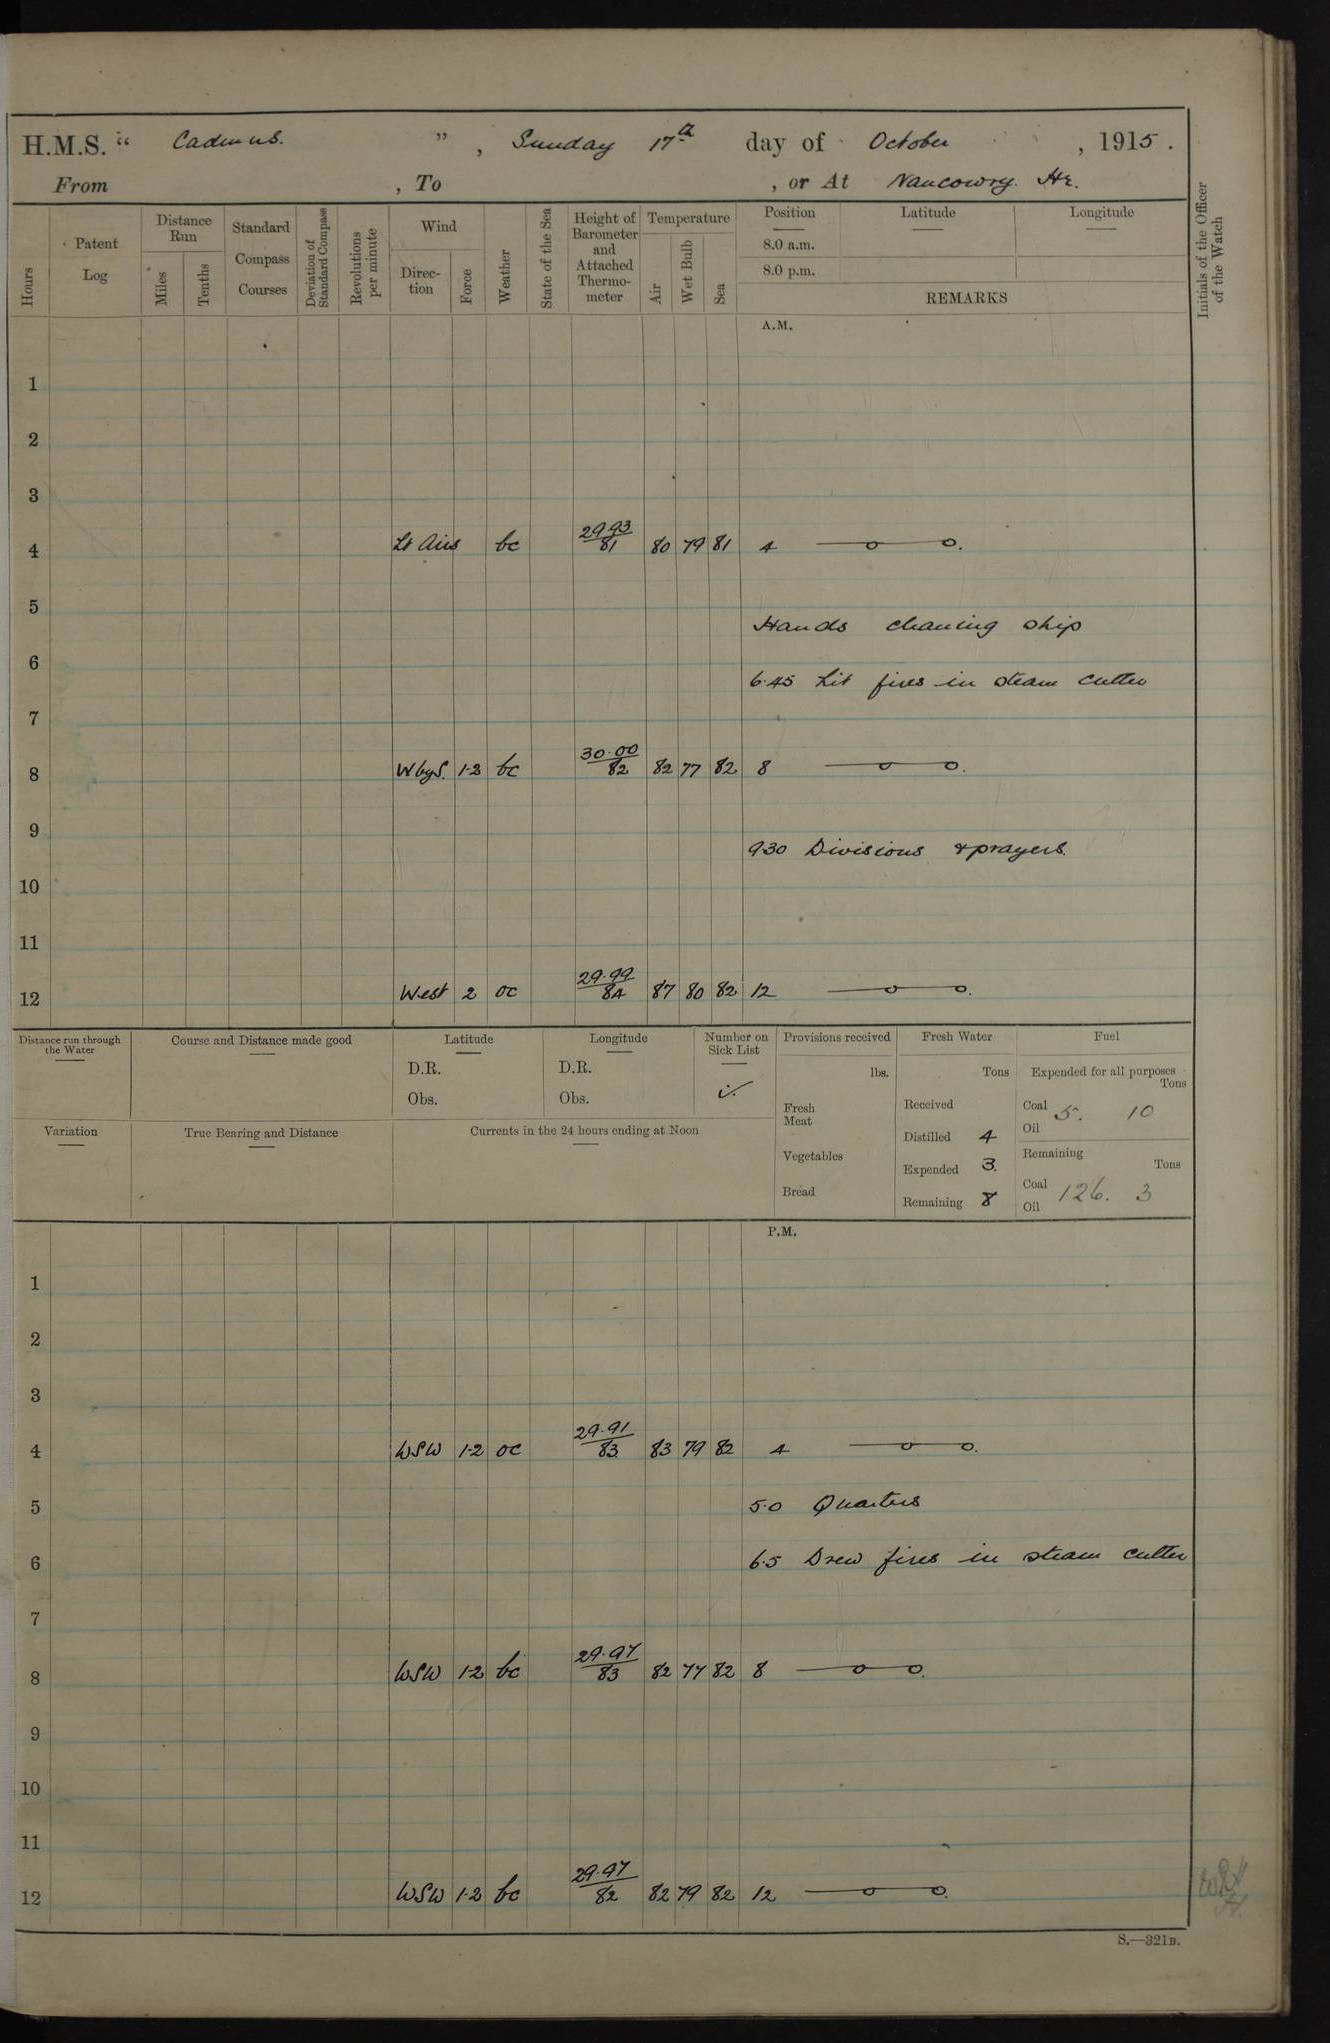 H.M.S. “ Cadmus. ” , Sunday 17th day of October , 1915 .
From , To , or At Nancowry Hr.
Hours
Patent Log
Distance Run
Miles
Tenths
Standard Compass Courses
Deviation of Standard Compass
Revolutions per minute
Wind
Direction
Force
Weather
State of the Sea
Height of Barometer and Attached Thermometer
Temperature
Air
Wet Bulb
Sea
Position Latitude Longitude
8.0 a.m.
8.0 p.m.
REMARKS
Initials of the Officer of the Watch
A.M.
1
2
3
4 Lt Airs bc 29.93/81 80 79 81 4
5
Hands cleaning ship
6
6.45 Lit fires in steam cutter
7
8 WbyS. 1-2 bc 30.00/82 82 77 82 8
9
930 Divisions & prayers.
10
11
12 West 2 oc 29.99/84 87 80 82 12
Distance run through the Water
Course and Distance made good
Latitude
D.R.
Obs.
Longitude
D.R.
Obs.
Number on Sick List
i.
Variation
True Bearing and Distance
Currents in the 24 hours ending at Noon
Provisions received
lbs.
Fresh Meat
Vegetables
Bread
Fresh Water
Tons
Received
Distilled 4
Expended 3.
Remaining 8
Fuel
Expended for all purposes
Tons
Coal 5. 10
Oil
Remaining
Tons
Coal 126. 3
Oil
P.M.
1
2
3
4 WSW 1-2 oc 29.91/83 83 79 82 4
5 5.0 Quarters
6 6.5 Drew fires in steam cutter
7
8 WSW 1-2 bc 29.97/83 82 77 82 8
9
10
11
12 WSW 1-2 bc 29.97/82 82 79 82 12
S.—321B.